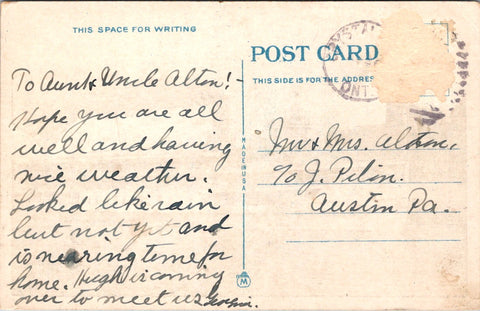 THIS SPACE FOR WRITING
To Aunt & Uncle Alton! -
Hope you are all
well and having
nice weather.
Looked like rain
but not yet and
is nearing time for
home. Hugh is coming
over to meet us
MADE IN USA
M
POST CARD
THIS SIDE IS FOR THE ADDRESS
CRYSTAL
ONT
Mr & Mrs. Alton,
% J. Pilon.
Austin Pa.